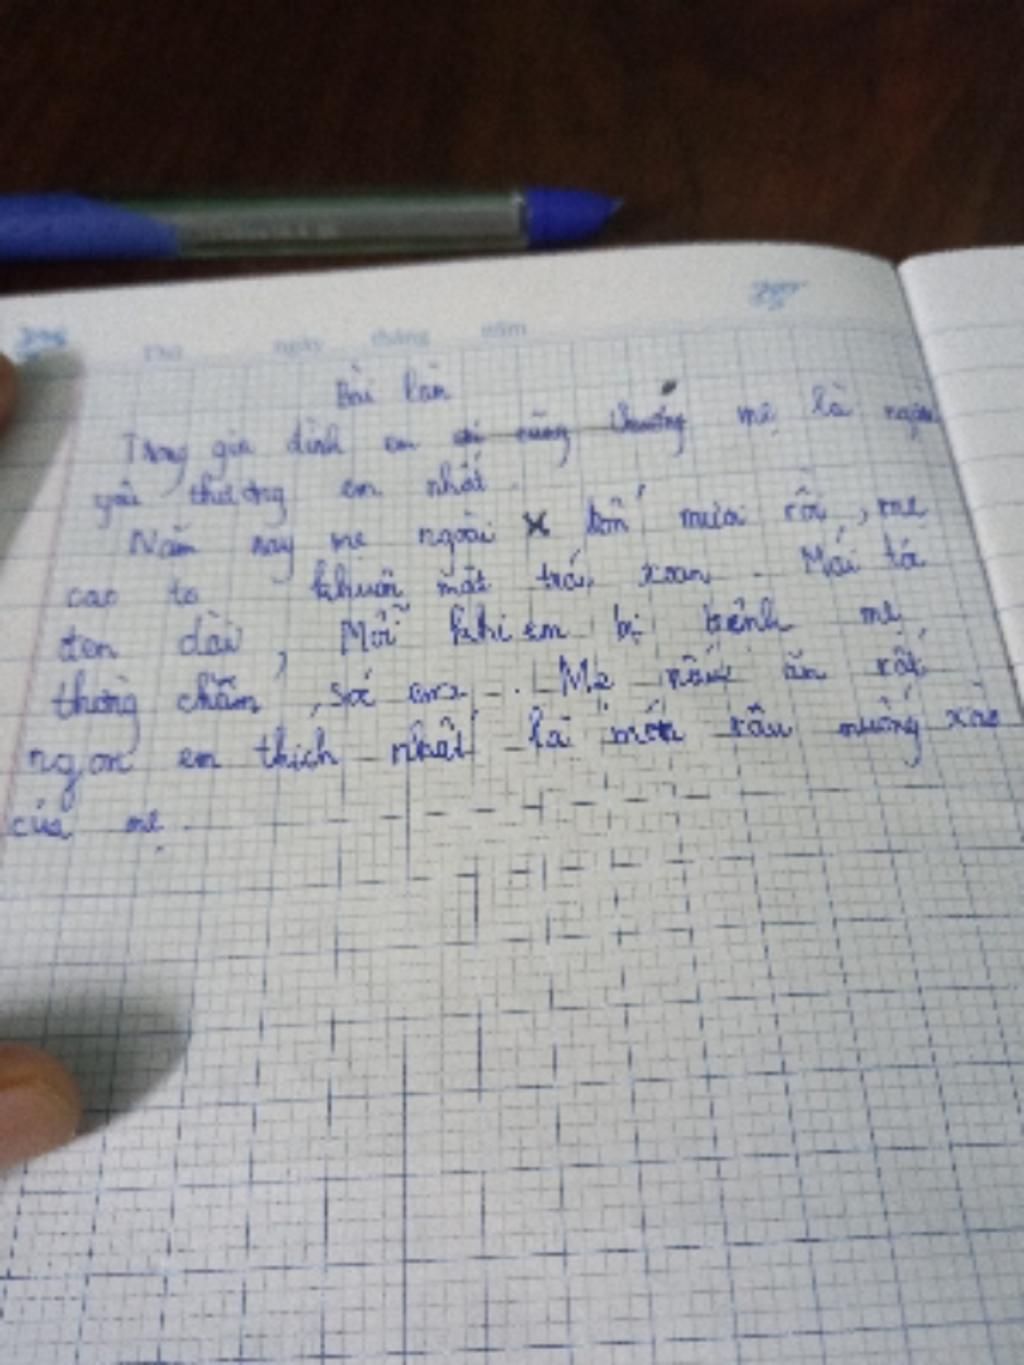 Thứ ngày tháng năm
Bài làm
Trong gia đình em ai cũng thương mẹ là người
yêu thương em nhất.
Năm nay mẹ ngoài bốn mươi rồi, mẹ
cao to khuôn mặt trái xoan. Mái tó
đen dài, Mỗi khi em bị bệnh mẹ
thờng chăm, sóc em. Mẹ nấu ăn rất
ngon em thích nhất là món rau muống xào
của mẹ